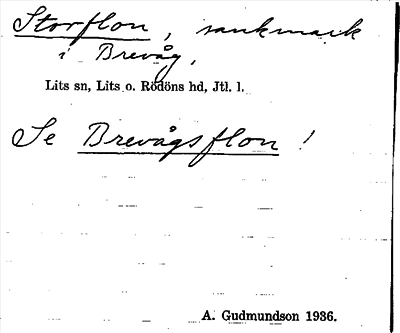 Storflon, sankmark
i Brevåg,
Lits sn, Lits o. Rödöns hd, Jtl. l.
Se Brevågsflon!
A. Gudmundson 1936.